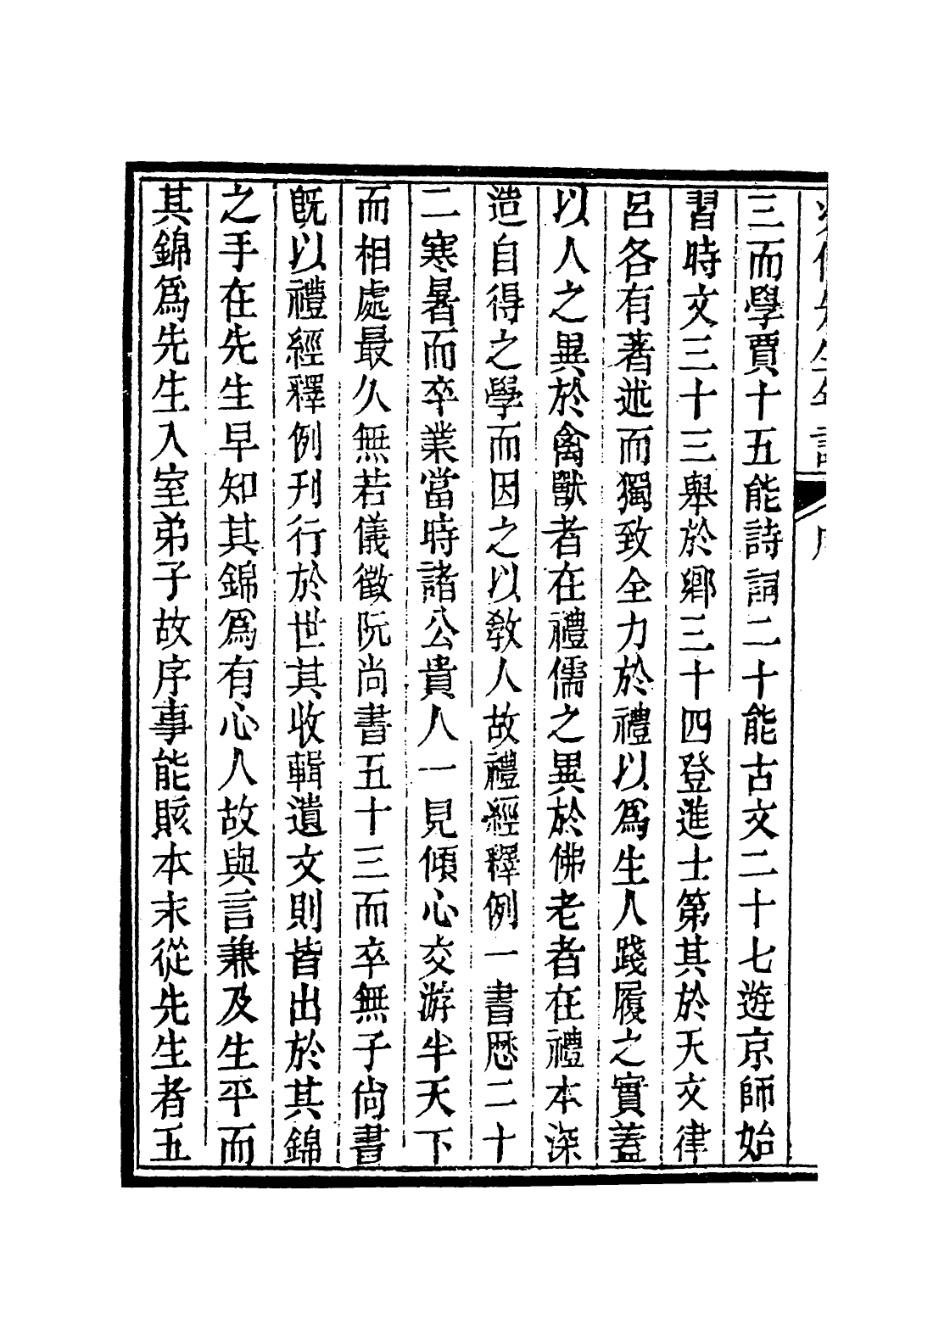 三而學賈十五能詩詞二十能古文二十七遊京師始
習時文三十三舉於鄉三十四登進士第其於天文律
呂各有著述而獨致全力於禮以爲生人踐履之實蓋
以人之異於禽獸者在禮儒之異於佛老者在禮本深
造自得之學而因之以敎人故禮經釋例一書歷二十
二寒暑而卒業當時諸公貴人一見傾心交游半天下
而相處最久無若儀徵阮尚書五十三而卒無子尙書
旣以禮經釋例刊行於世其收輯遺文則皆出於其錦
之手在先生早知其錦爲有心人故與言兼及生平而
其錦爲先生入室弟子故序事能賅本末從先生者五